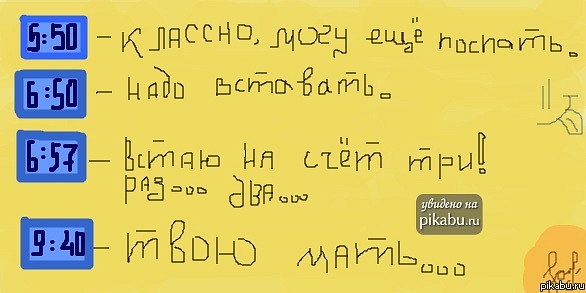 5:50 – классно, могу ещё поспать.
6:50 – надо вставать.
6:57 – встаю на счёт три!
раз... два...
увидено на
pikabu.ru
9:40 – твою мать...
pikabu.ru